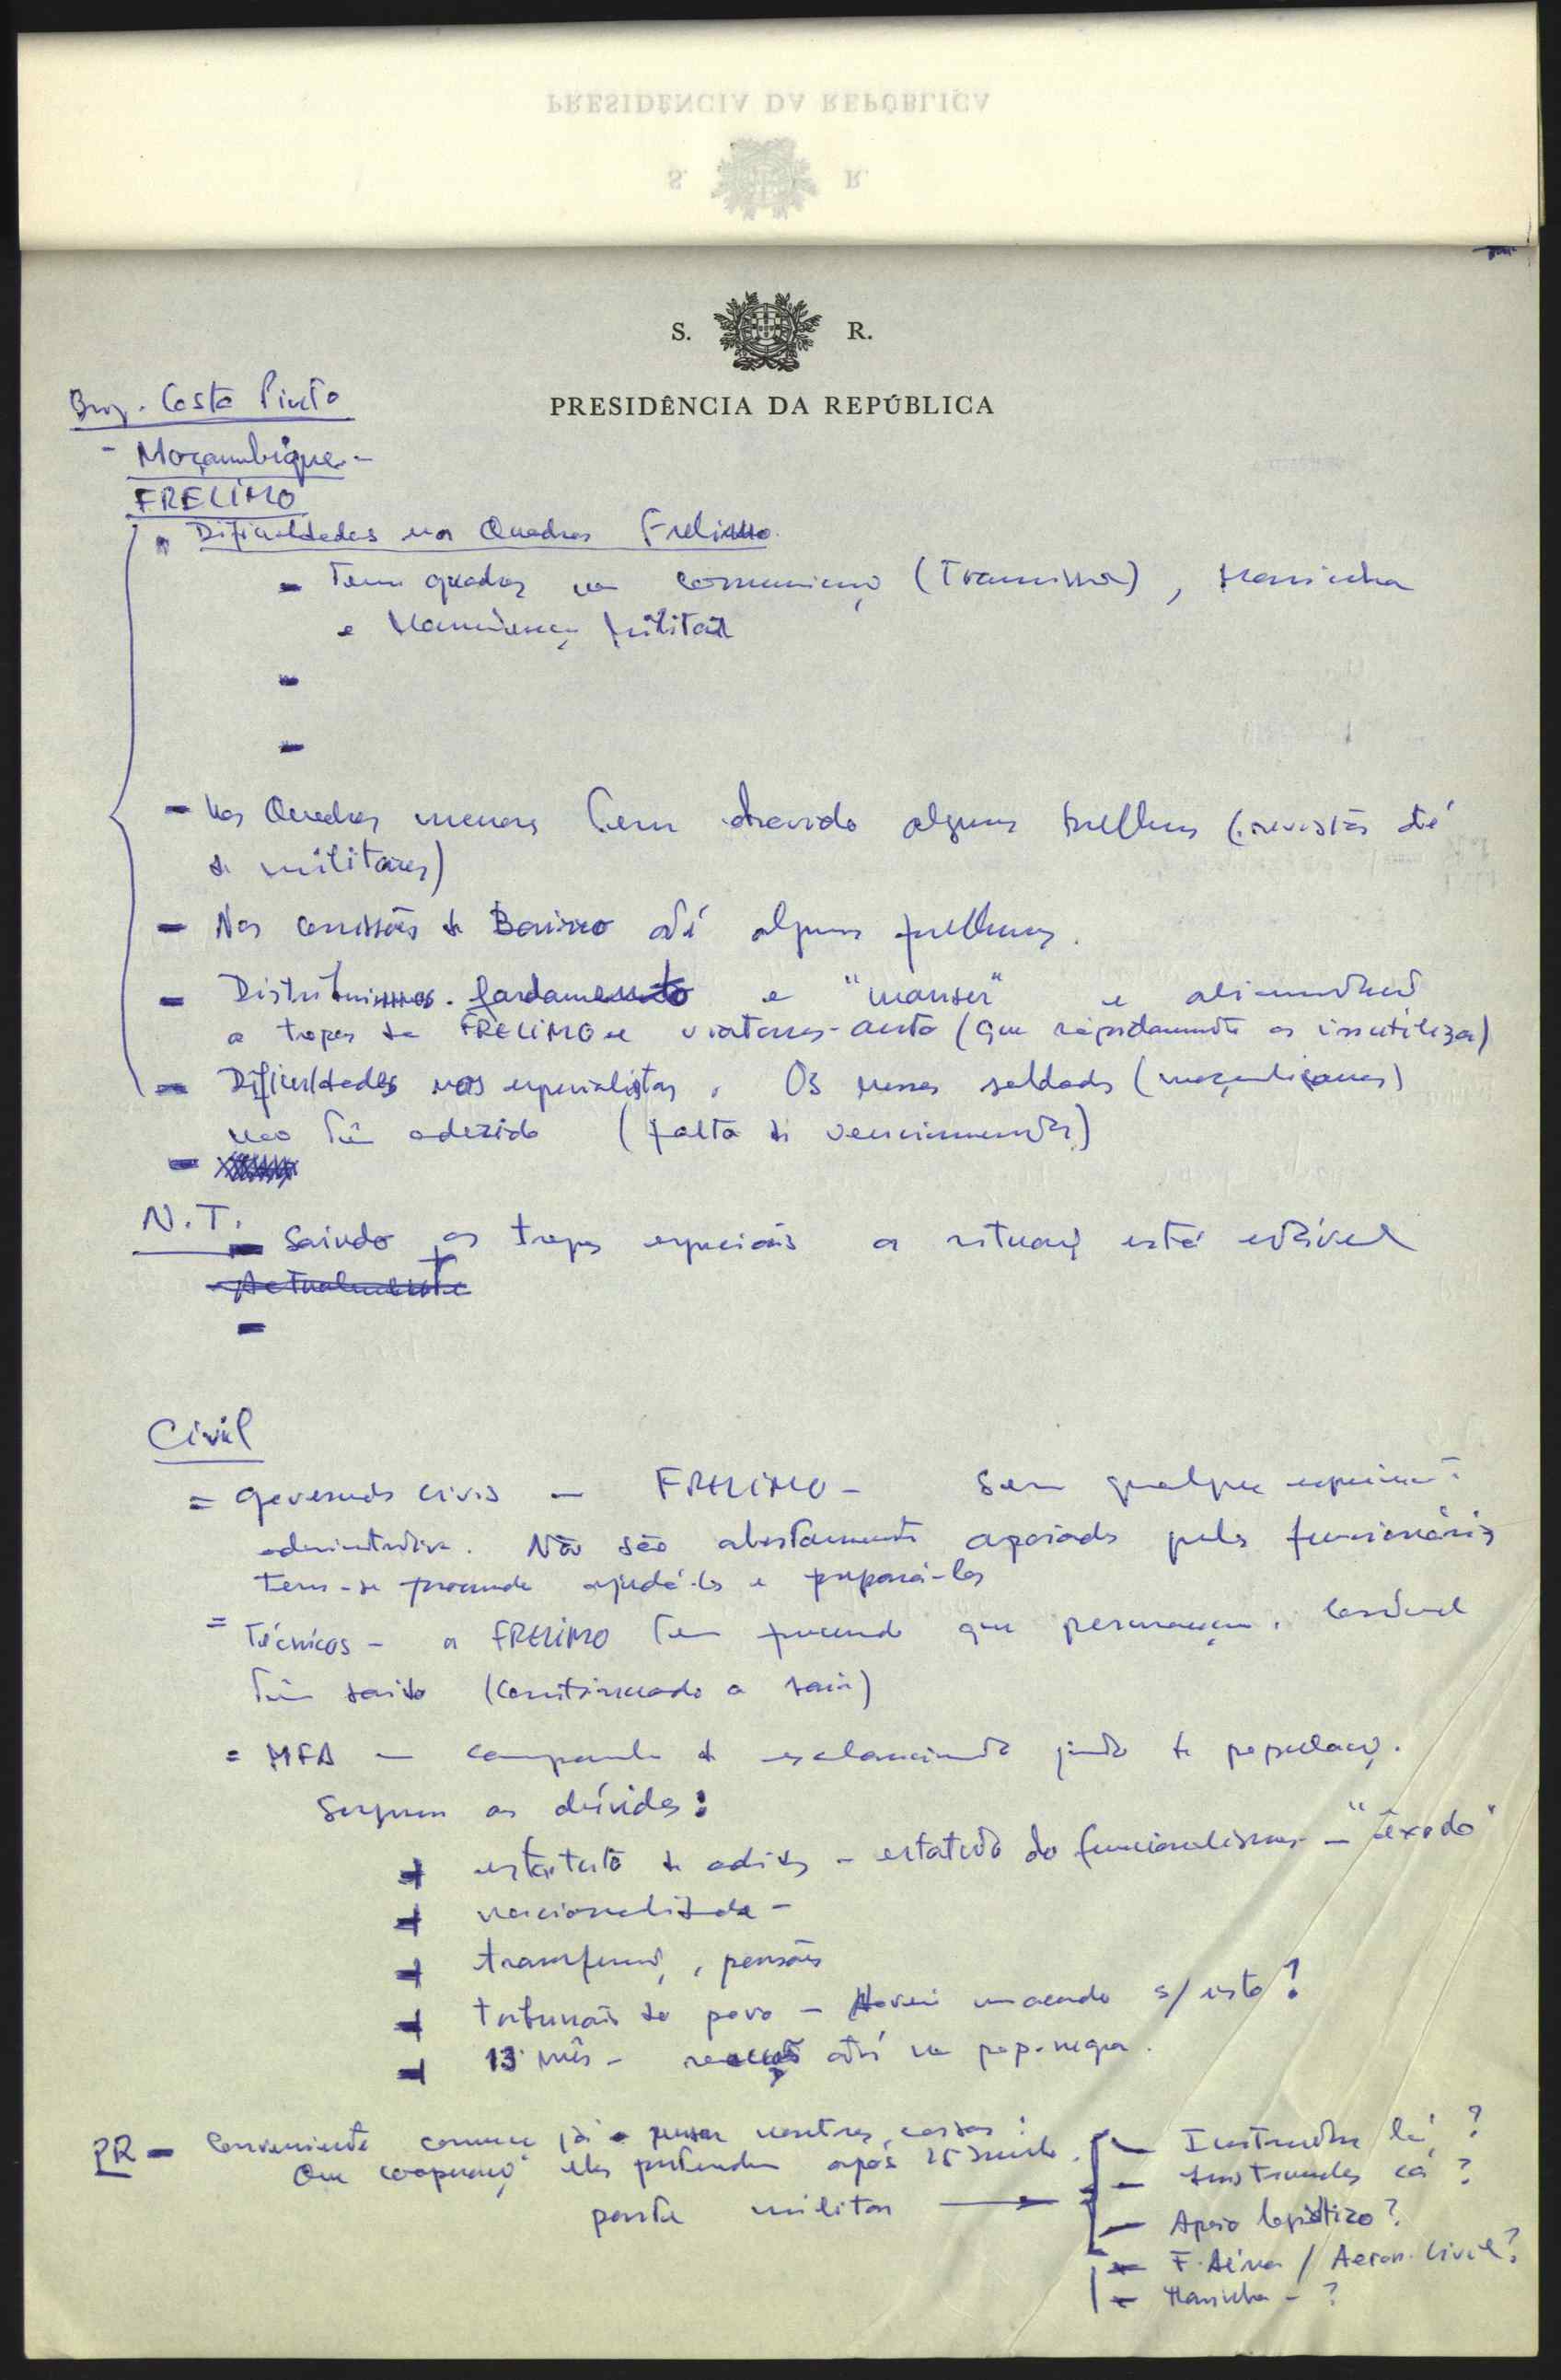 PRESIDÊNCIA DA REPÚBLICA
S. R.
S. R.
PRESIDÊNCIA DA REPÚBLICA
Brig. Costa Pinto
- Moçambique -
FRELIMO
Dificuldades nos Quadros Frelimo
- Tem quadros na comunicaç (Transmissões), Marinha
e Manutenç Militar
-
-
- Nos Quadros menores tem havido alguns problemas (revistas até
de militares)
- Nas comissões de Bairro até alguns problemas.
- Distribuimos fardamento e "mauser" e alimentaç
a tropas da FRELIMO e viaturas-auto (que rapidamente as inutiliza)
- Dificuldades nos especialistas. Os nossos soldados (moçambicanos)
não têm aderido (falta de vencimentos)
-
N.T.
- Saindo as tropas especiais a situaç está estável
Actualmente
-
Civil
= governos civis - FRELIMO - Sem qualquer experiência
administrativa. Não são abertamente apoiados pelos funcionários
tem-se procurado ajudá-los e prepará-los
= Técnicos - a FRELIMO tem procurado que permaneçam.
Têm saído (continuado a sair)
= MFA - campanha de esclarecimento junto da populaç.
Surgem as dúvidas:
+ estatuto de adidos - estatuto do funcionalismo - "êxodo"
+ nacionalidade -
+ transferênc, pensões
+ tribunais do povo - Haverá s/ isto!
+ 13º mês - reacções até na pop. negra.
PR - Conveniente começar já a pensar noutras coisas:
Que cooperaç eles pretendem após 25 Junho.
parte militar →
- Instrução lá?
- Instruendos cá?
- Apoio logístico?
- F. Aérea / Aeron. Civil?
- Marinha - ?